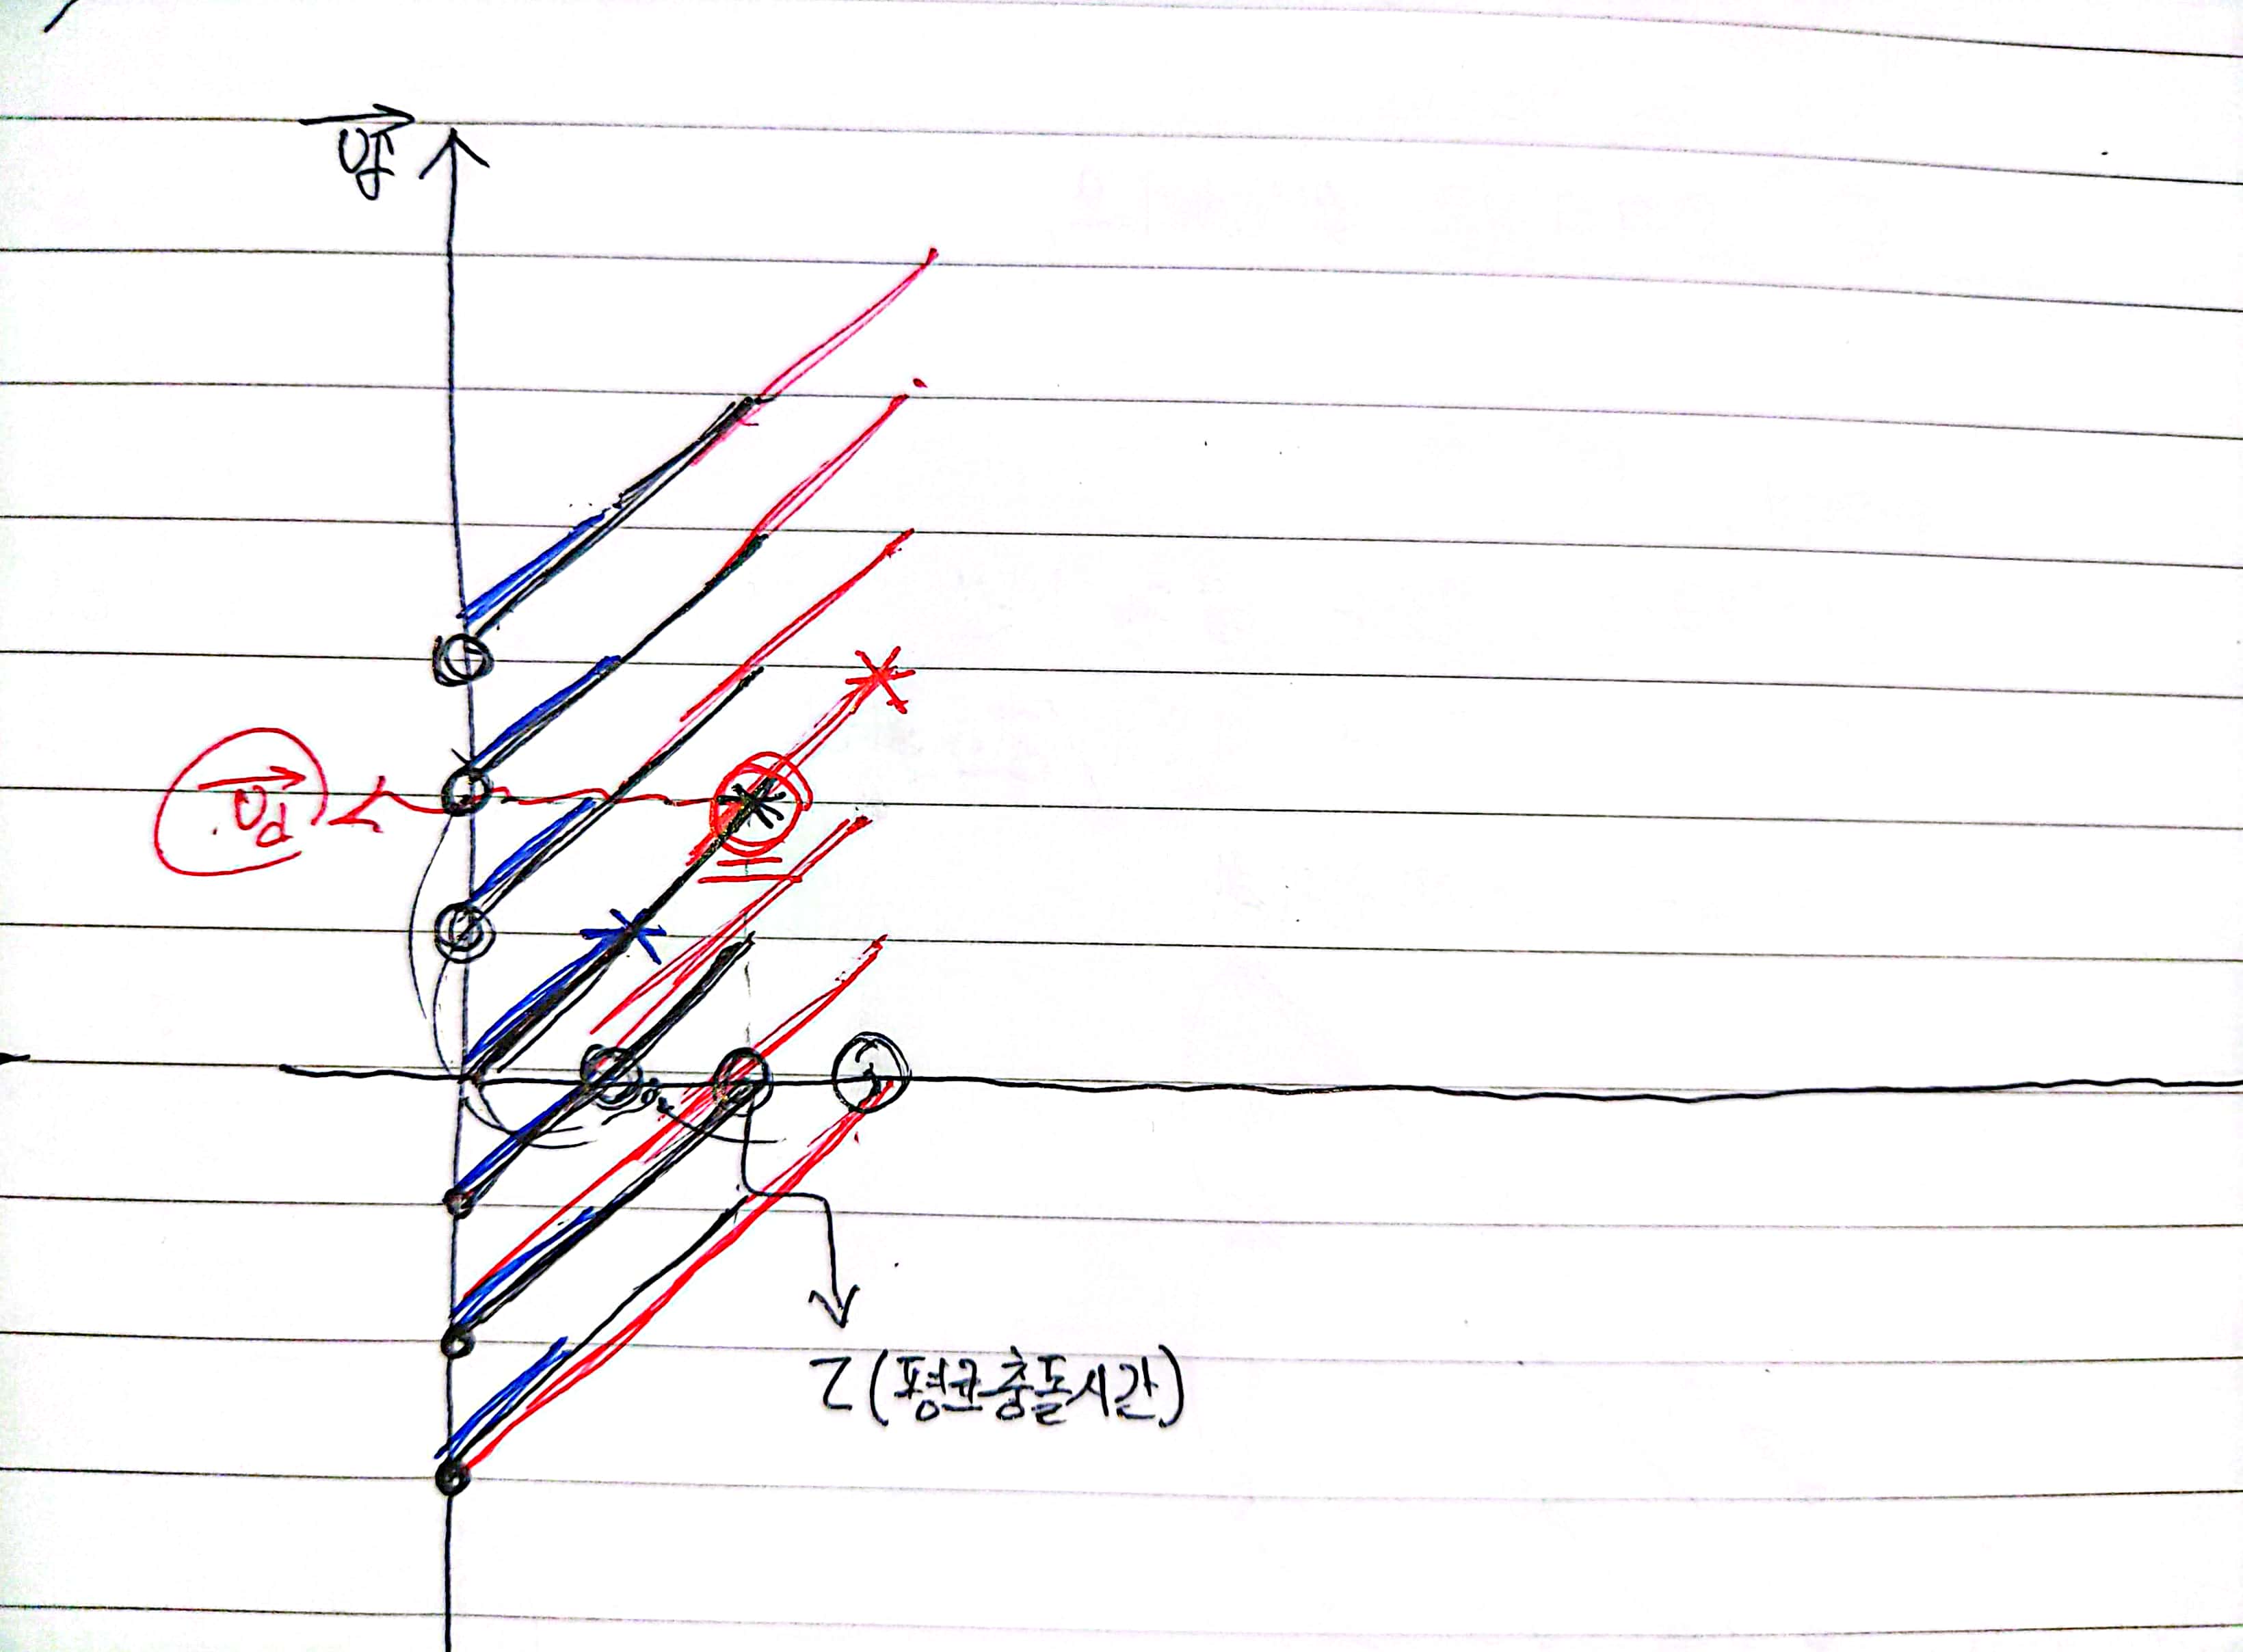 vf
vd
τ (평균충돌시간)